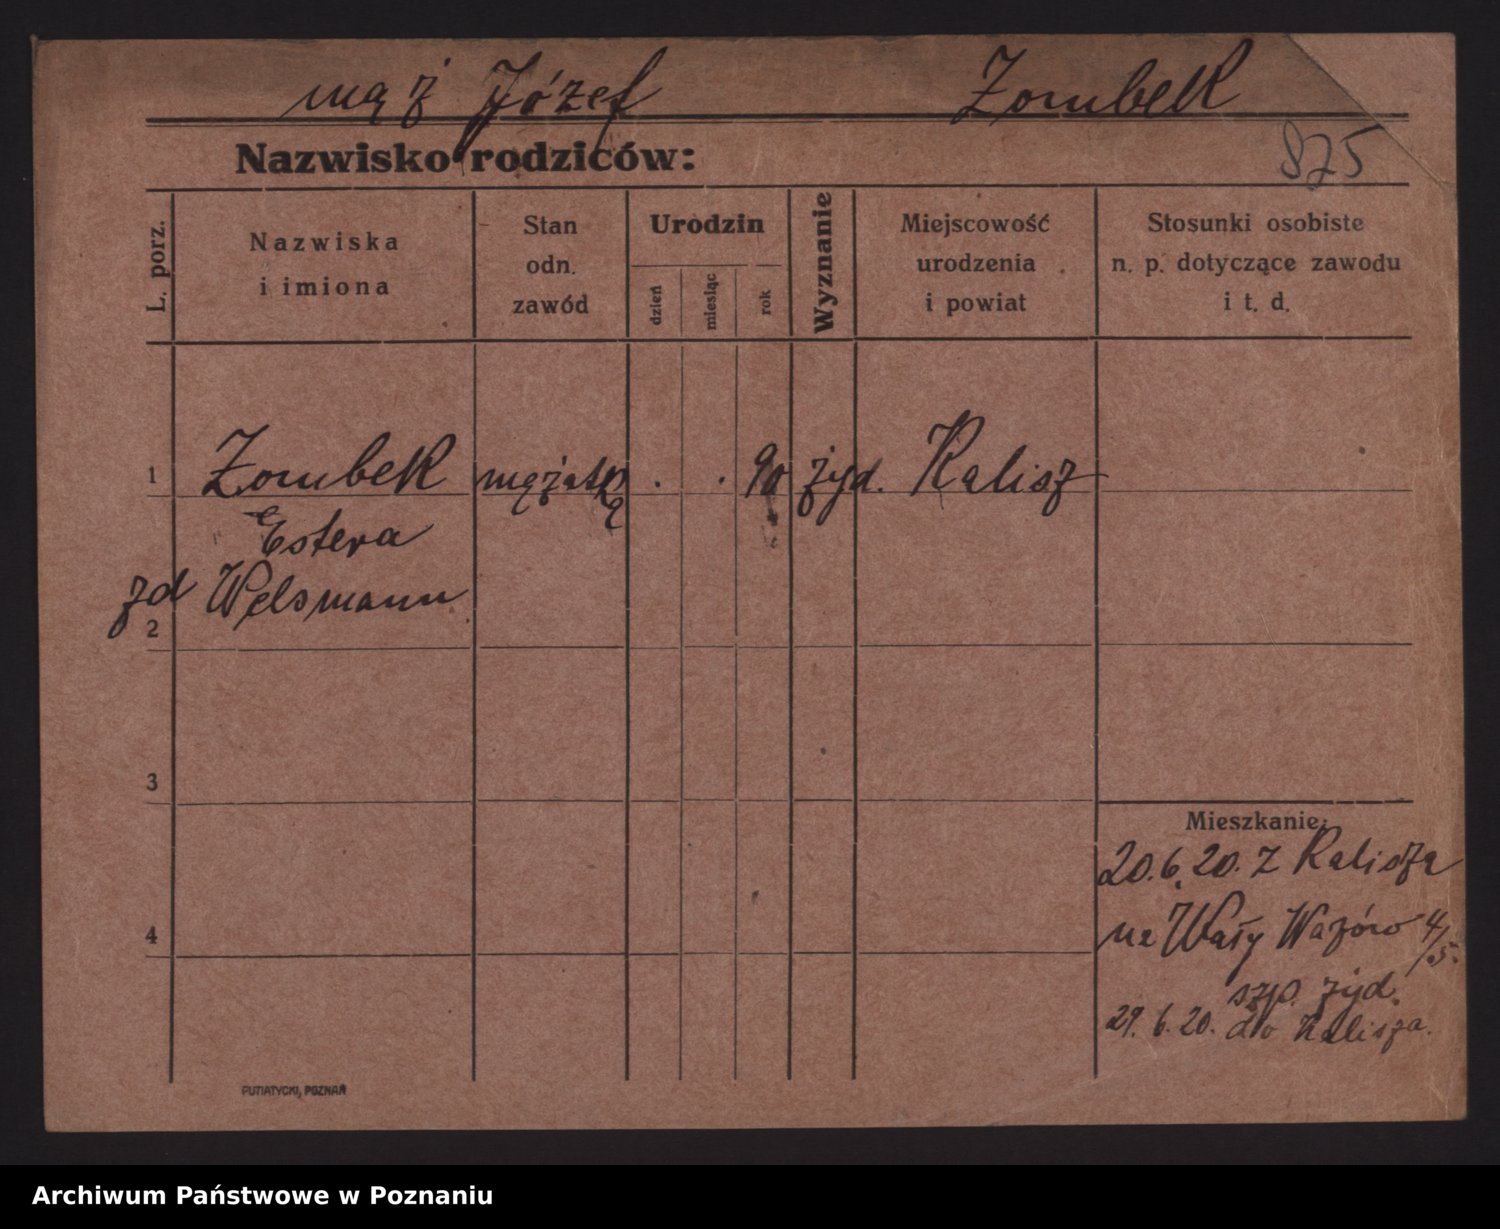 mąż Józef Zombek
875
Nazwisko rodziców:
L. porz.
Nazwiska
i imiona
Stan
odn.
zawód
Urodzin
dzień
miesiąc
rok
Wyznanie
Miejscowość
urodzenia
i powiat
Stosunki osobiste
n. p. dotyczące zawodu
i t. d.
1 Zombek mężatka . . 90 żyd. Kalisz
Estera
zd Welsmann
2
3
4
Mieszkanie:
20.6.20. z Kalisza
na Wały Wazów 4/5.
szp. żyd.
29.6.20. do Kalisza.
PUTIATYCKI, POZNAŃ
Archiwum Państwowe w Poznaniu